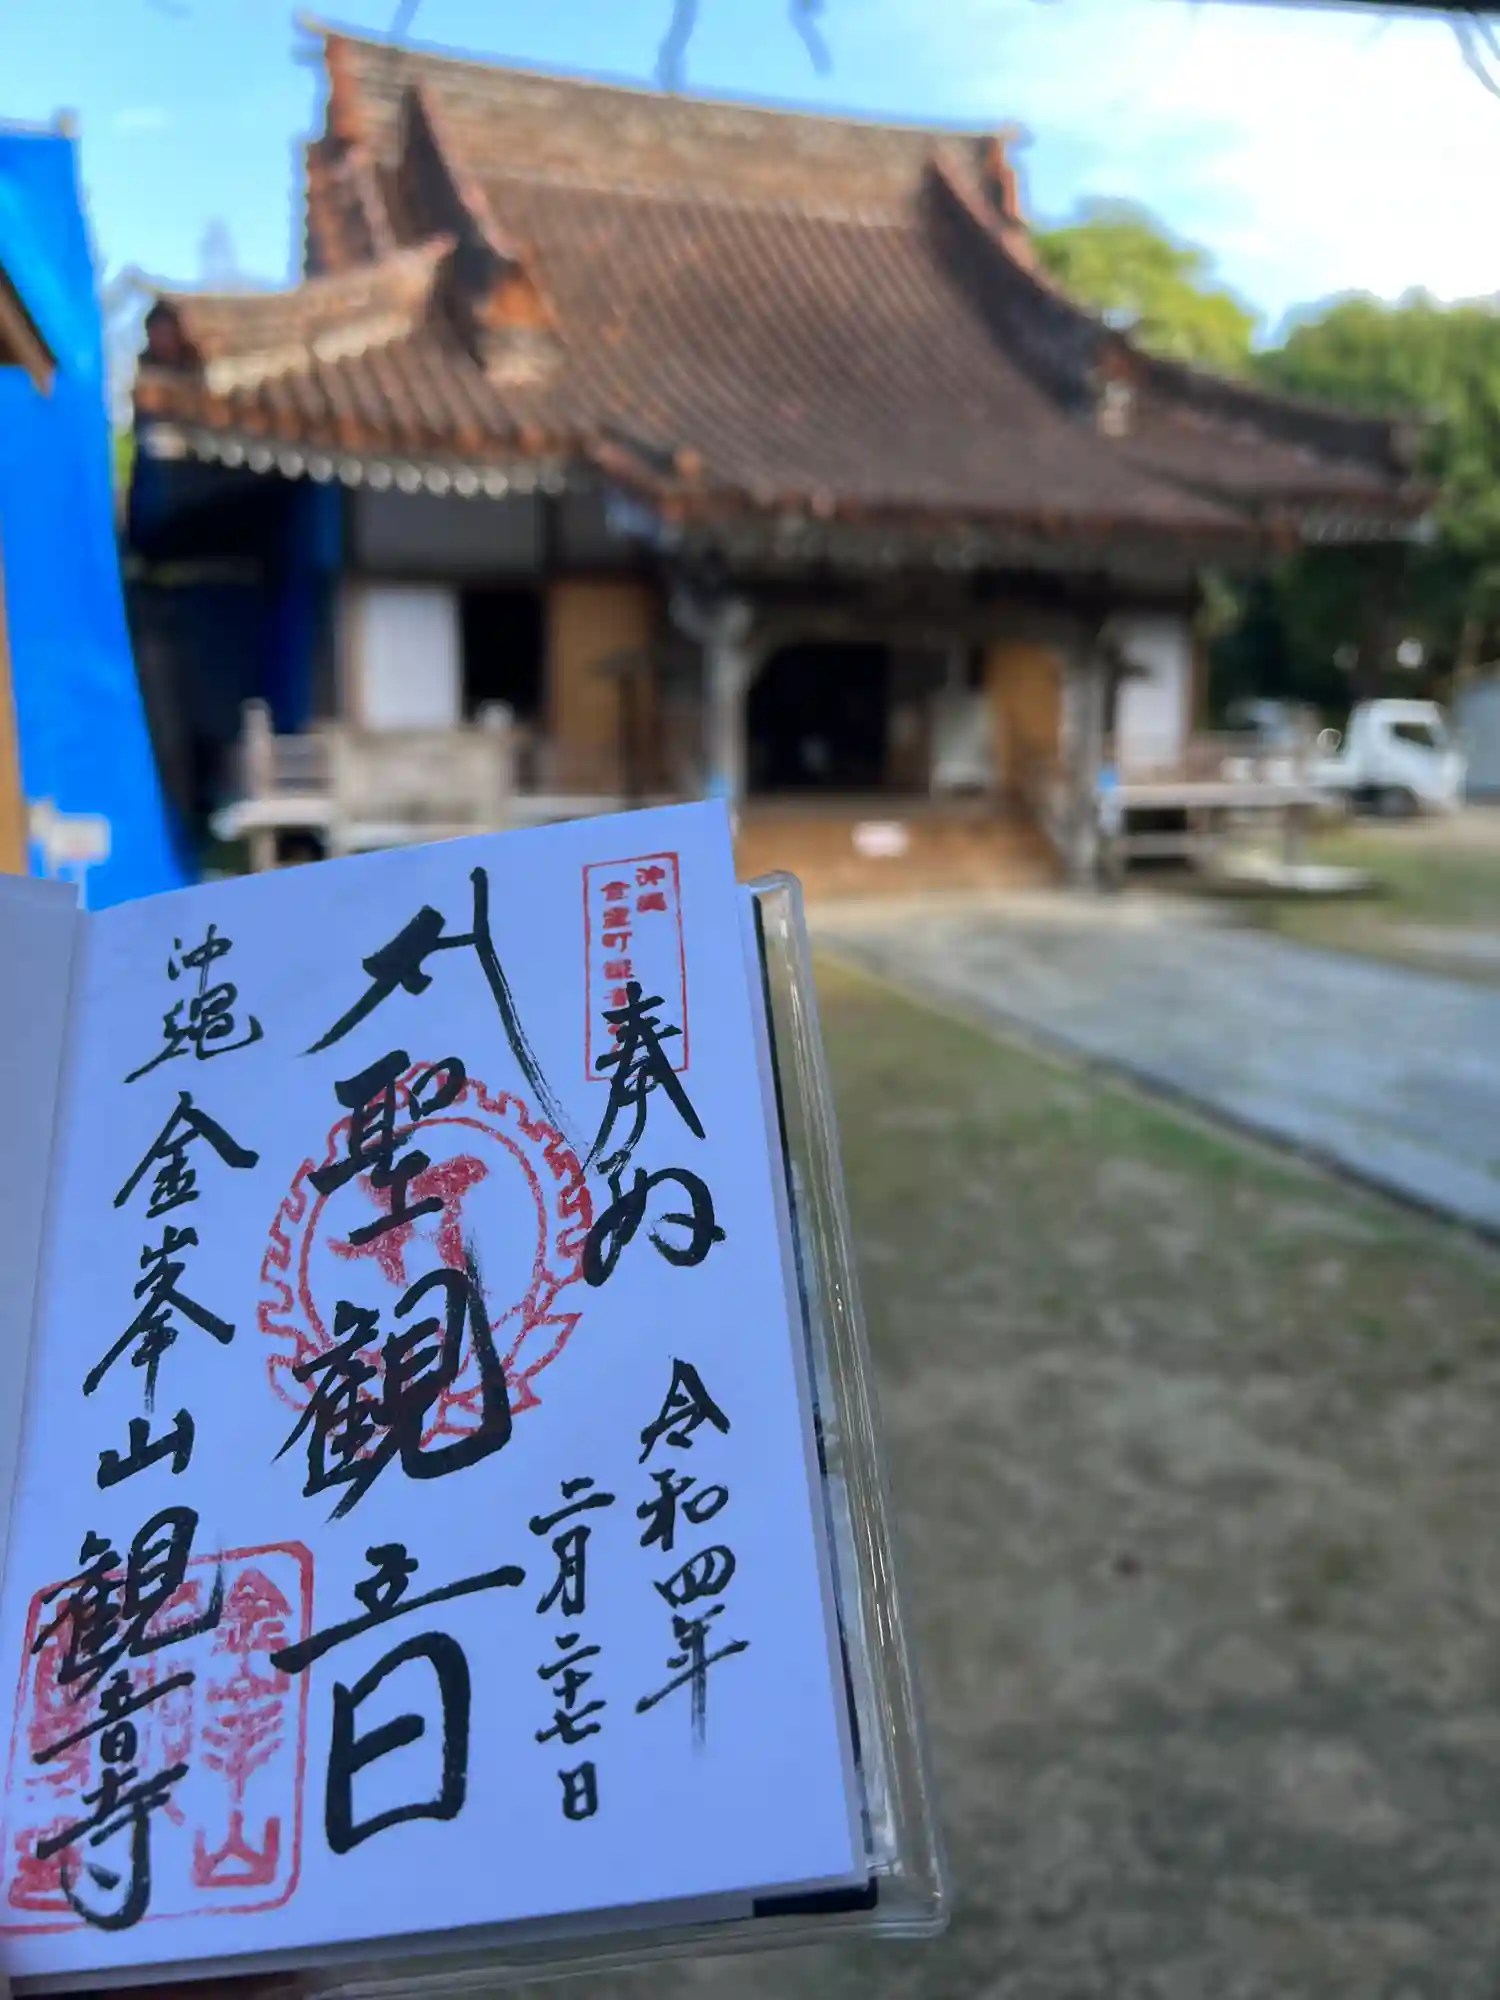 奉拝
令和四年
二月二十七日
聖観音
沖縄 金峯山 観音寺
沖縄
金武町
金峯山